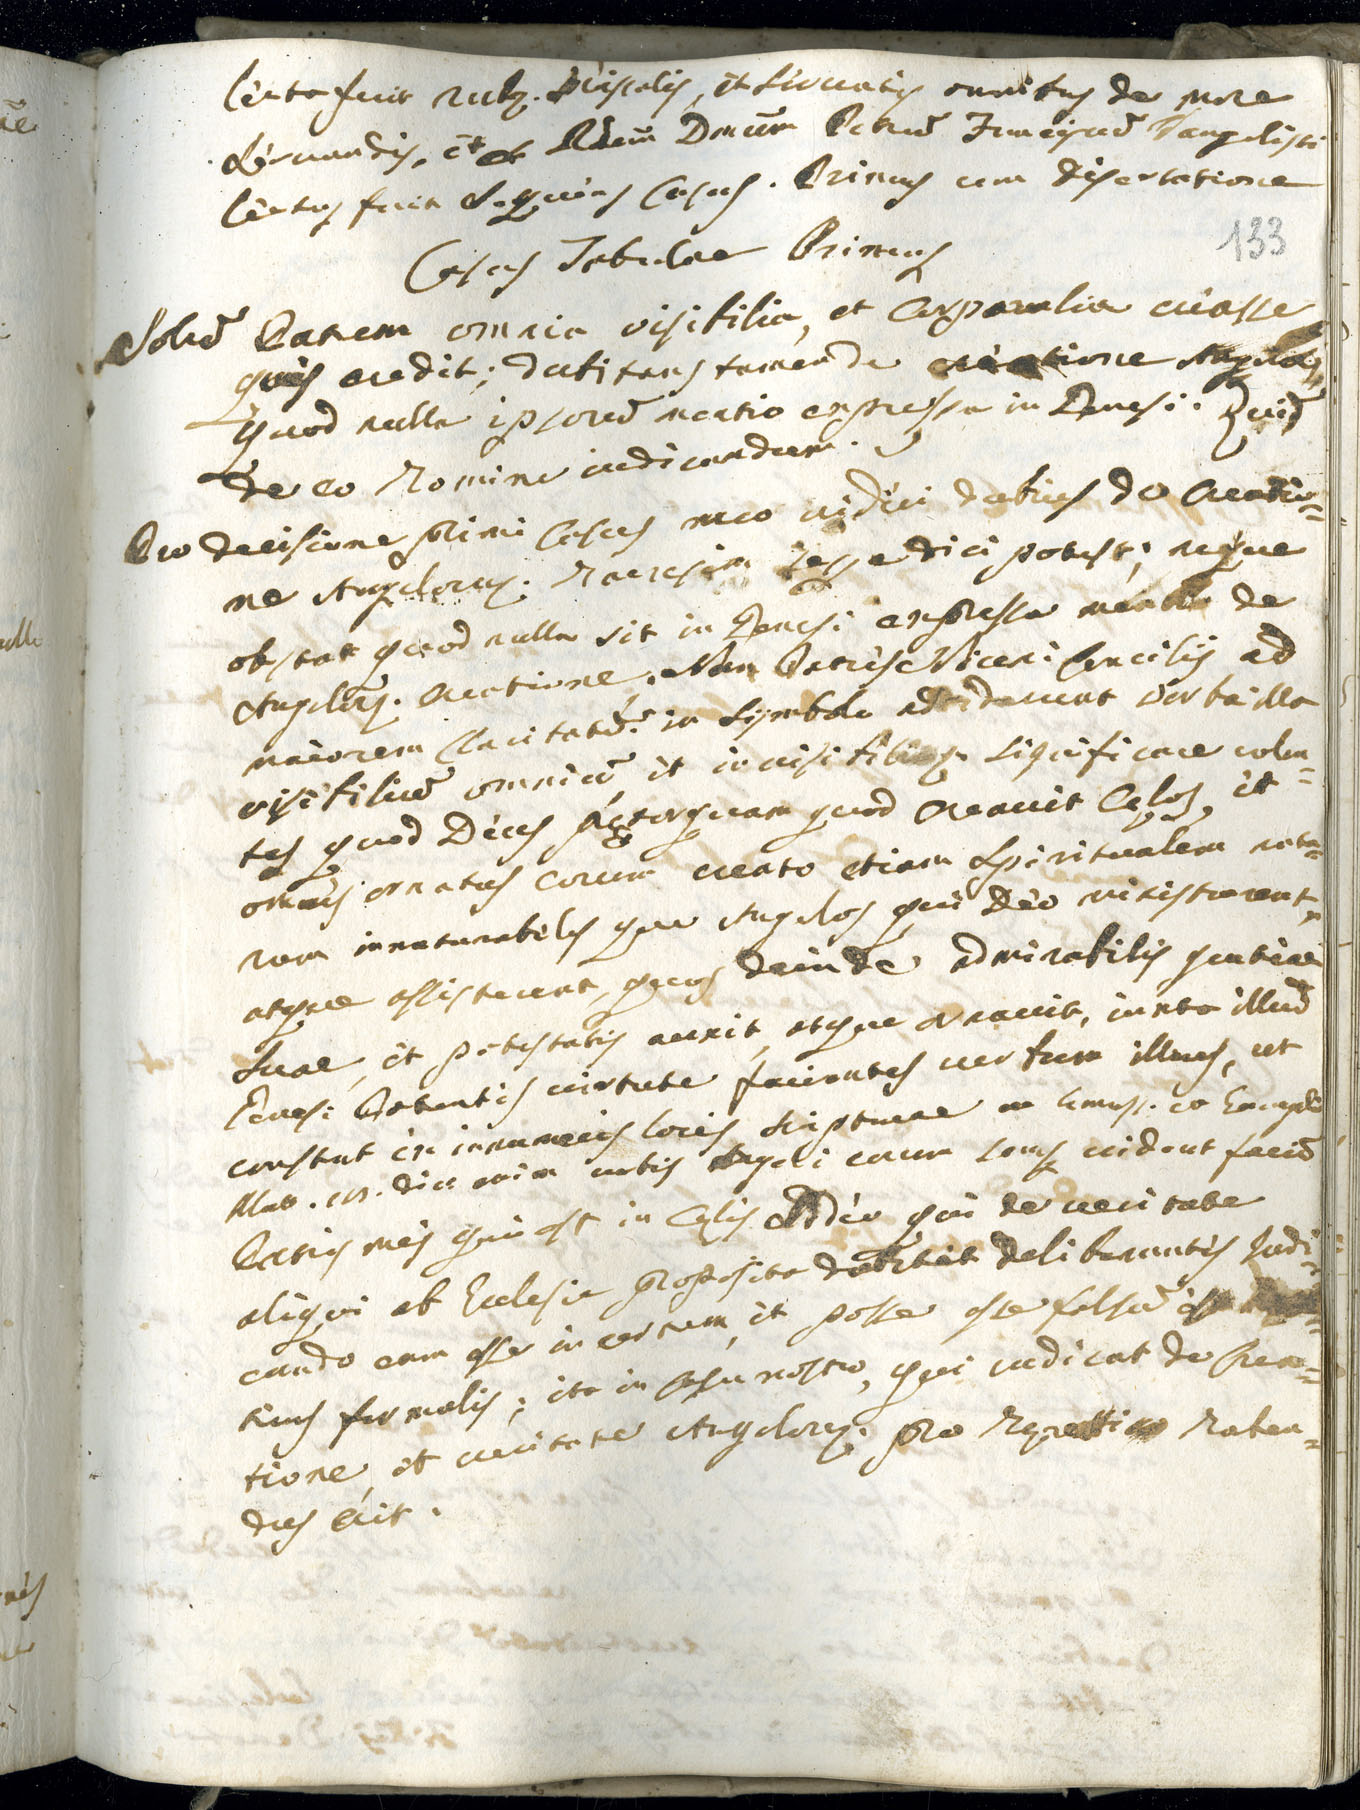 lecta fuit rubr. Missalis, et servatis omnibus de more
servandis, et R.dum Dnum Petrum Vangelisti
lectus fuit sequens Casus. Primus cum disertatione
133
Casus Tabulae Primus
Solum Patrem omnia visibilia, et Corporalia creasse
quis credit; dubitans tamen de creatione Angelor.
quod nulla ipsorum mentio expressa in Genesi. Quid
de eo Homine iudicandum.
Pro decisione primi Casus meo videri dubius de Creatio=
ne Angelorum. Haeresim esse dici potest; neque
obstat quod nulla sit in Genesi expressa mentio de
Angelorum. creatione. Nam Patres Niceni Concilij ad
maiorem claritatem in Symbolo addiderunt verba illa
visibilium omnium, et invisibilium. significare volen=
tes quod Deus praeterquam quod creavit Celos, et
omnis ornatus eorum creato etiam Spiritualem natu=
ram innumerabiles que Angelos qui Deo ministrarent,
atque assisterent, quos deinde admirabilis gratiae
suae, et potestatis auxit, atque ornavit, iuxta illud
Genesi Potentis virtute facientes verbum illius, ut
constat ex innumeris locis Scripturae Evangeli
Matt. dico enim vobis Angeli eorum semp. vident faciem
Patris mei qui est in Celis Adeo qui de veritate
aliqui ab Ecclesia proposita dubitat deliberantis Iudi=
cando eam esse incertam, et posse esse falsum est
ticus formalis; ita in casu nostro, qui iudicat de Crea=
tione, et veritate Angelorum. pro Haretico Haben=
dus erit.